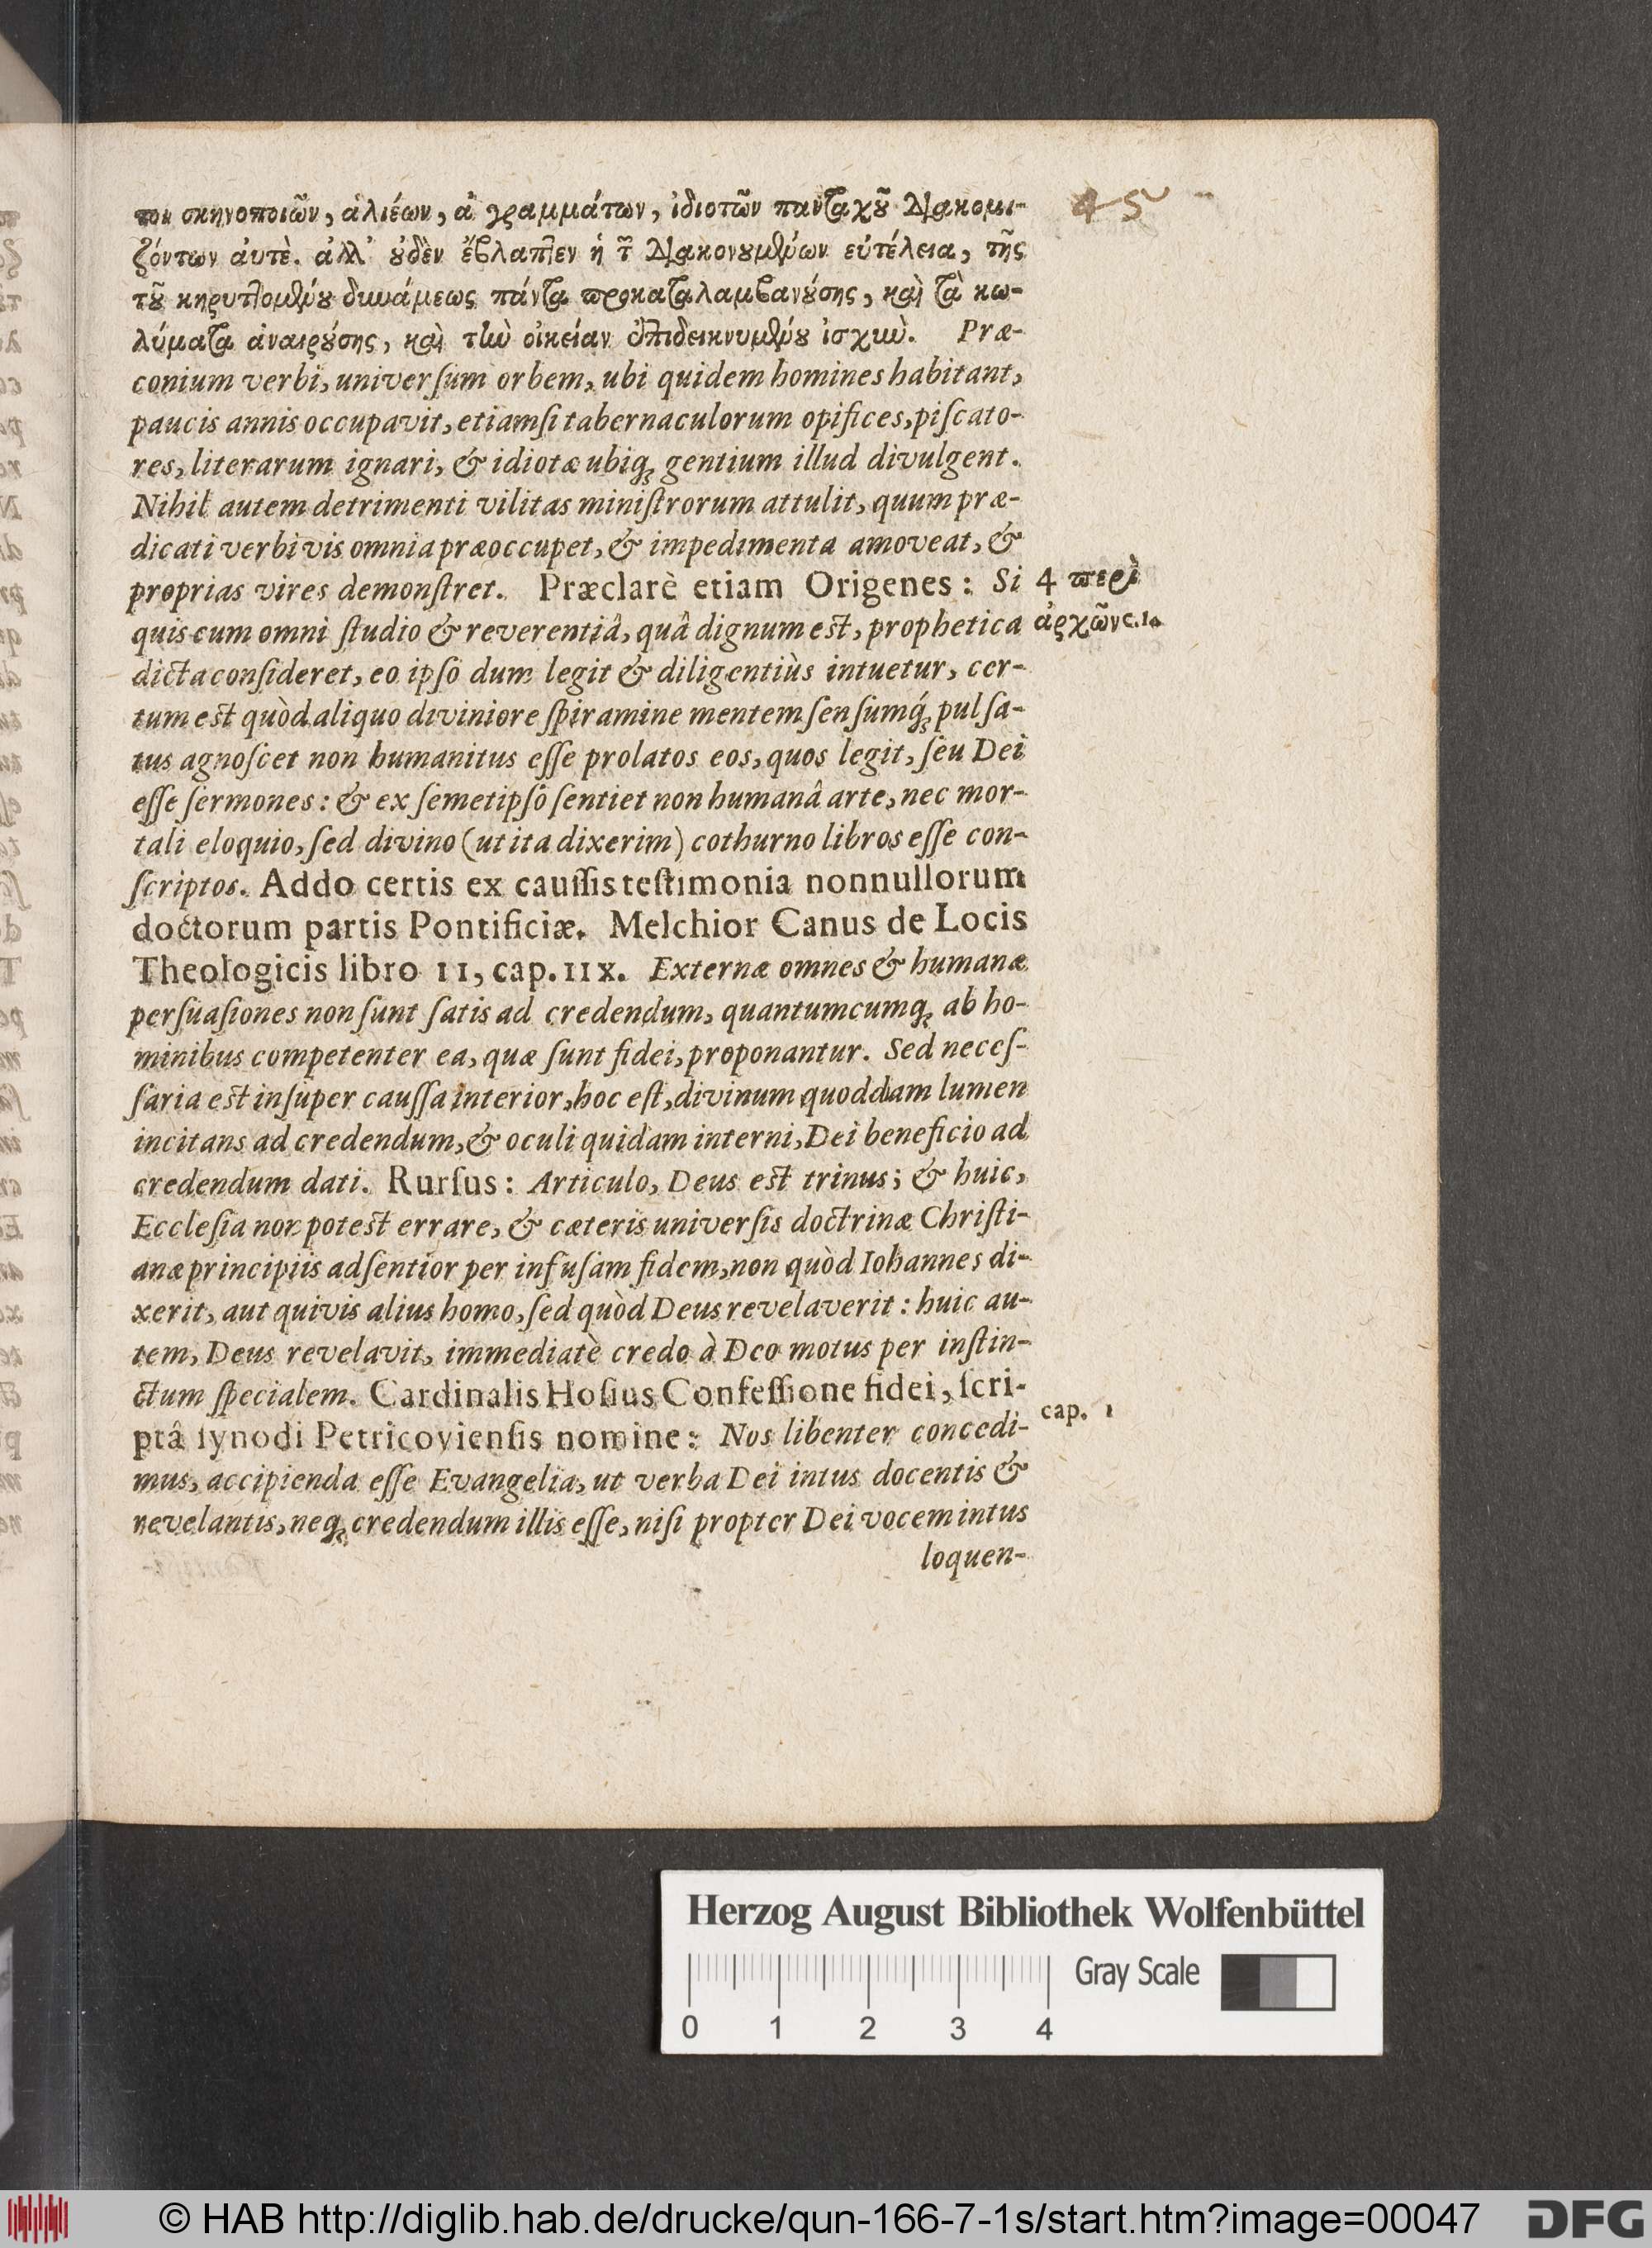 45
των σκηνοποιῶν, ἁλιέων, ἀγραμμάτων, ἰδιοτῶν πανταχοῦ διακομι-
ζόντων ἀυτὲ. ἀλλ' οὐδὲν ἔβλαπτεν ἡ τ͂ διακονουμένων εὐτέλεια, τῆς
τοῦ κηρυττομένου δυνάμεως πάντα προκαταλαμβανούσης, καὶ τὰ κω-
λύματα ἀναιρούσης, καὶ τὴν οἰκείαν ἐπιδεικνυμένου ἰσχὺν. Præ-
conium verbi, universum orbem, ubi quidem homines habitant,
paucis annis occupavit, etiamsi tabernaculorum opifices, piscato-
res, literarum ignari, & idiotæ ubiq; gentium illud divulgent.
Nihil autem detrimenti vilitas ministrorum attulit, quum præ-
dicati verbi vis omnia præoccupet, & impedimenta amoveat, &
proprias vires demonstret. Præclarè etiam Origenes: Si
4 περὶ
quis cum omni studio & reverentiâ, quâ dignum est, prophetica
ἀρχῶν c. 1.
dicta consideret, eo ipso dum legit & diligentiùs intuetur, cer-
tum est quòd aliquo diviniore spiramine mentem sensumq́; pulsa-
tus agnoscet non humanitus esse prolatos eos, quos legit, seu Dei
esse sermones: & ex semetipso sentiet non humanâ arte, nec mor-
tali eloquio, sed divino (ut ita dixerim) cothurno libros esse con-
scriptos. Addo certis ex caussis testimonia nonnullorum
doctorum partis Pontificiæ. Melchior Canus de Locis
Theologicis libro 11, cap. 11x. Externæ omnes & humanæ
persuasiones non sunt satis ad credendum, quantumcumq; ab ho-
minibus competenter ea, quæ sunt fidei, proponantur. Sed neces-
saria est insuper caussa interior, hoc est, divinum quoddam lumen
incitans ad credendum, & oculi quidam interni, Dei beneficio ad
credendum dati. Rursus: Articulo, Deus est trinus; & huic,
Ecclesia non potest errare, & cæteris universis doctrinæ Christi-
anæ principiis adsentior per infusam fidem, non quòd Iohannes di-
xerit, aut quivis alius homo, sed quòd Deus revelaverit: huic au-
tem, Deus revelavit, immediatè credo à Deo motus per instin-
ctum specialem. Cardinalis Hosius Confessione fidei, scri-
cap. 1
ptâ synodi Petricoviensis nomine: Nos libenter concedi-
mus, accipienda esse Evangelia, ut verba Dei intus docentis &
revelantis, neq; credendum illis esse, nisi propter Dei vocem intus
loquen-
Herzog August Bibliothek Wolfenbüttel
Gray Scale
0 1 2 3 4
© HAB http://diglib.hab.de/drucke/qun-166-7-1s/start.htm?image=00047
DFG